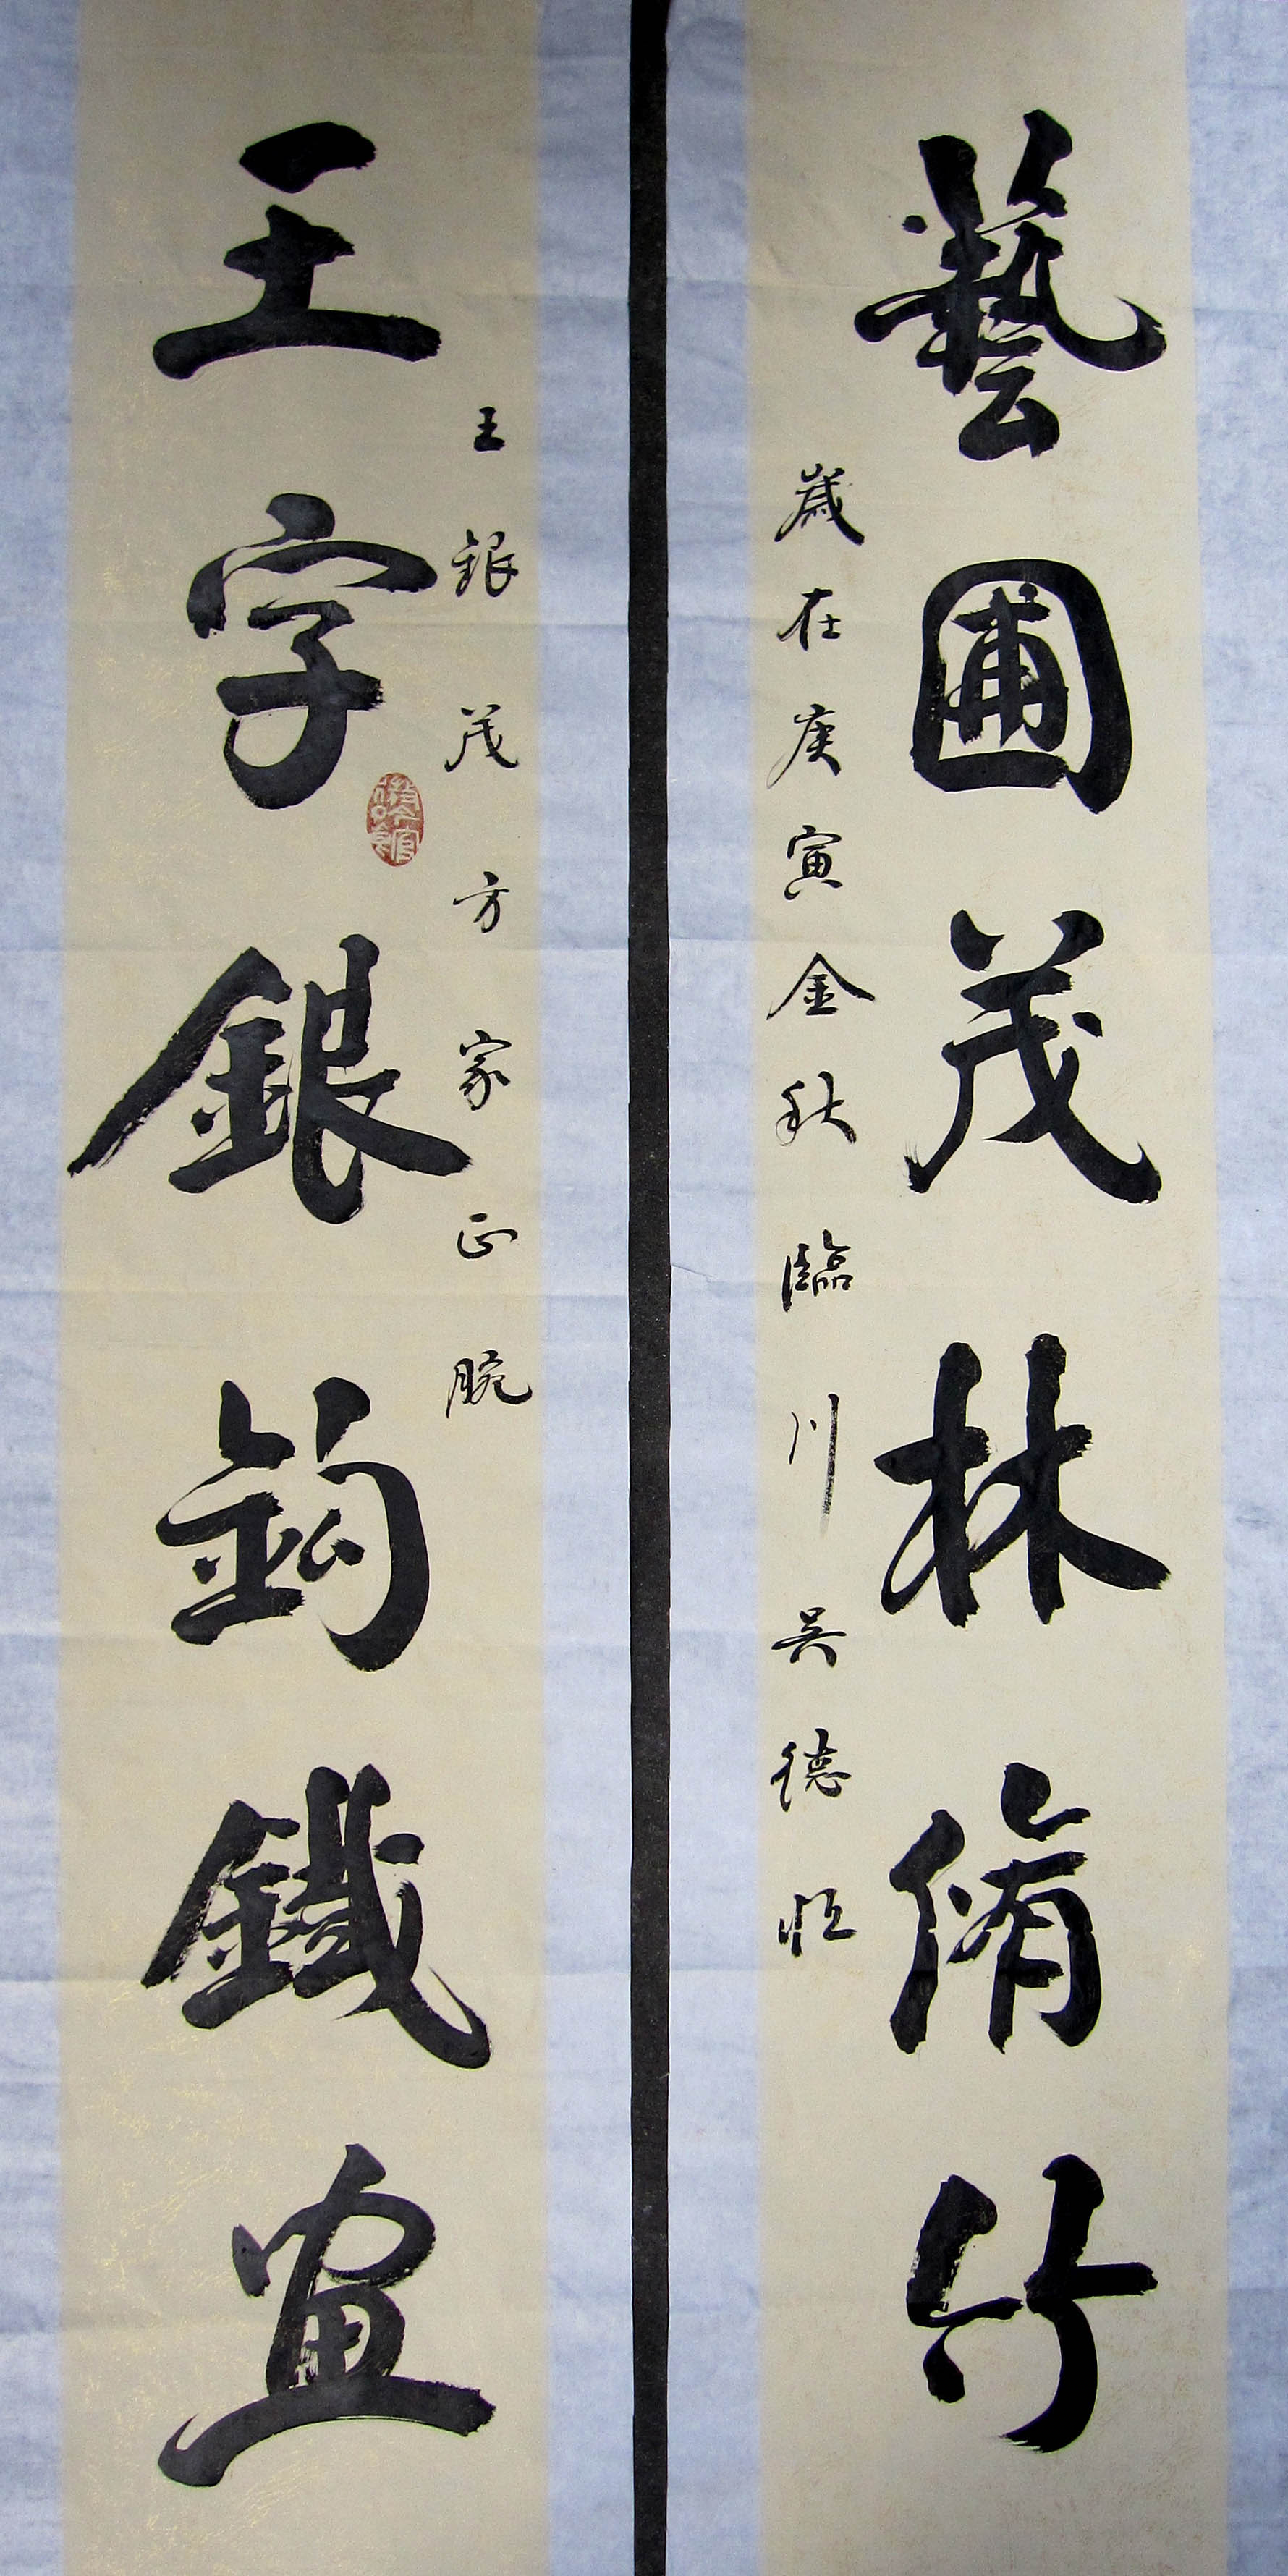 藝圃茂林脩竹
歲在庚寅金秋臨川吴德恒
王銀茂方家正腕
王字銀鈎鐵畫